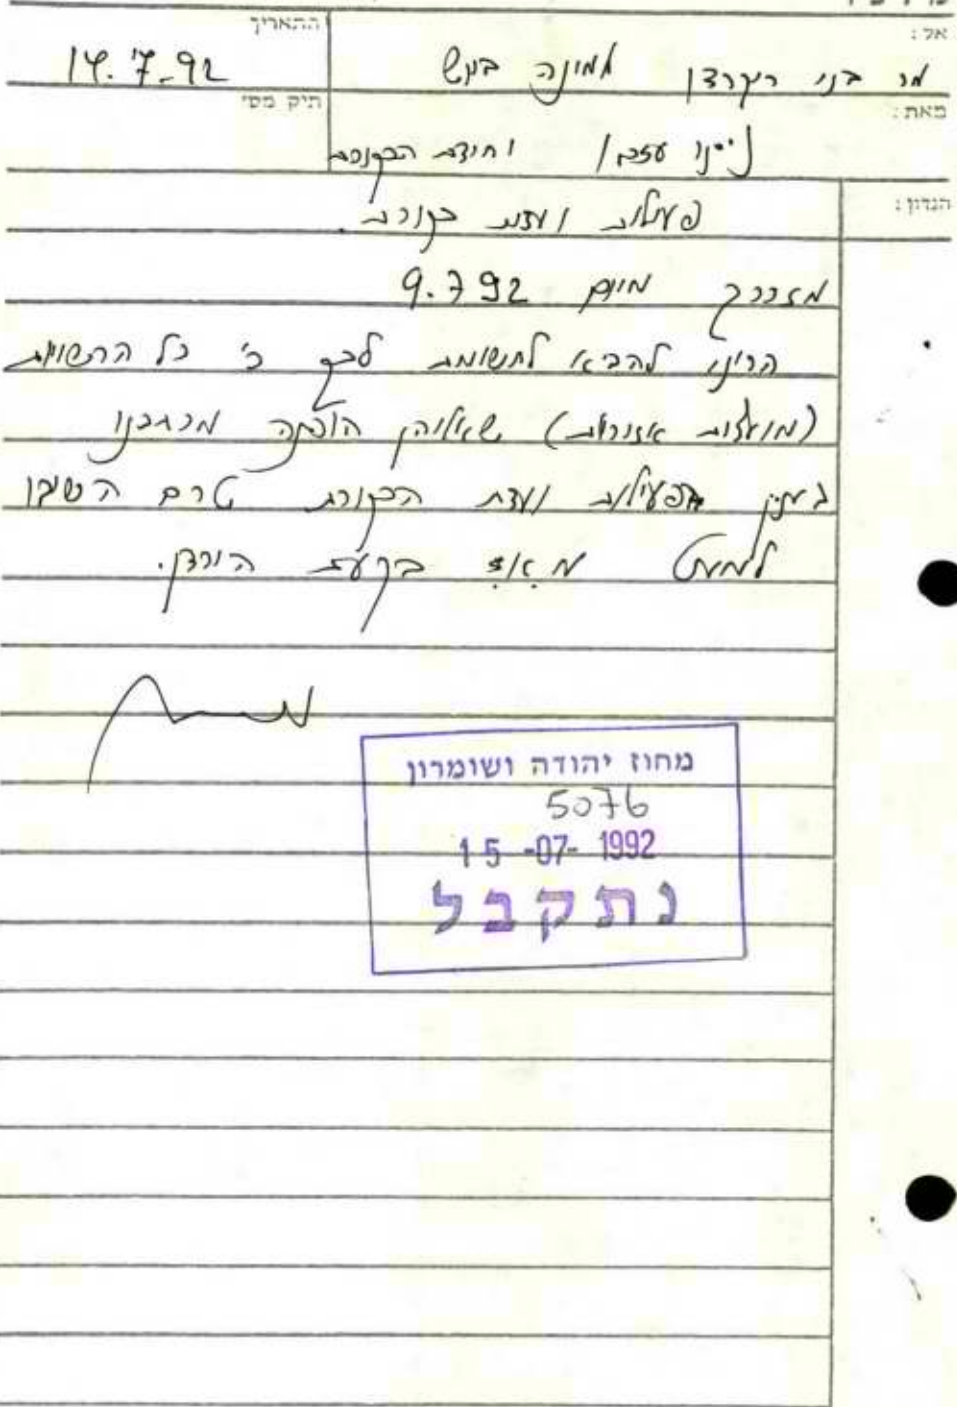 אל:
מר בני ריקרדן ממונה ביו"ש
התאריך
14.7.92
מאת:
תיק מס'
הנדון:
פעילות ועדת בקורת.
מזכרך מיום 9.7.92
הריני להביא לתשומת לבך כי כל הרשויות
(מועצות אזוריות) שאליהן הופנה מכתבנו
בענין פעילות ועדת הבקורת טרם השיבו
למעט מ.א. בקעת הירדן.
מחוז יהודה ושומרון
5076
15 -07- 1992
נתקבל